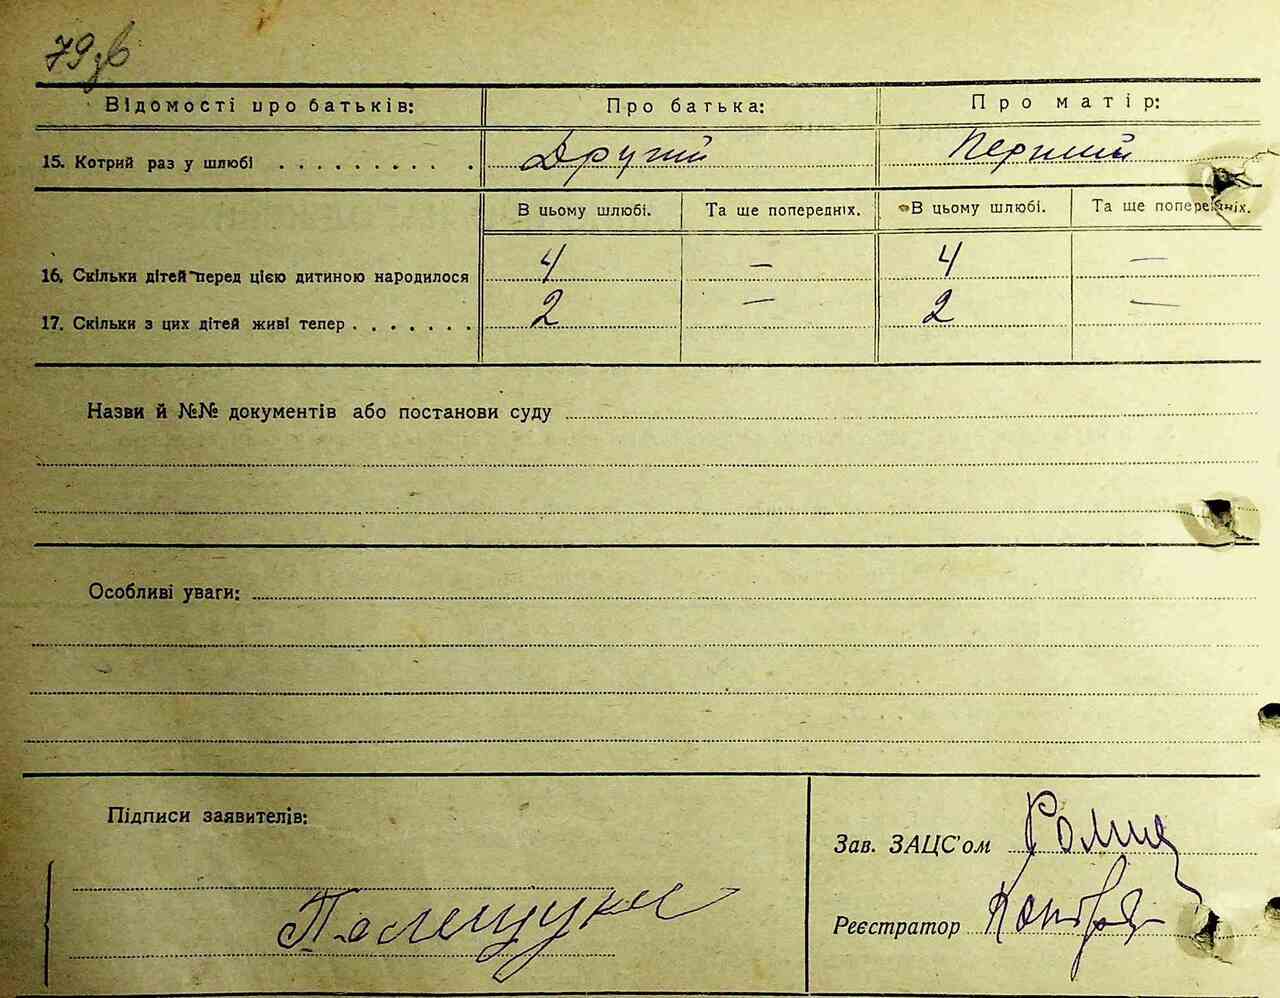 79зв
Відомості про батьків: Про батька: Про матір:
15. Котрий раз у шлюбі . . . . . . . . . . Другий Перший
В цьому шлюбі. Та ще попередніх. В цьому шлюбі. Та ще попередніх.
16. Скільки дітей перед цією дитиною народилося 4 — 4 —
17. Скільки з цих дітей живі тепер . . . . . . . 2 — 2 —
Назви й №№ документів або постанови суду
Особливі уваги:
Підписи заявителів:
Зав. ЗАЦС'ом
Реєстратор